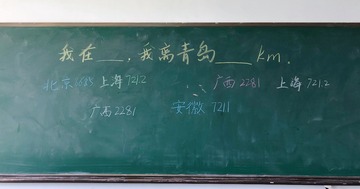 我在___，我离青岛___km.
北京685 上海721.2 广西2281 上海721.2
广西2281 安徽7211